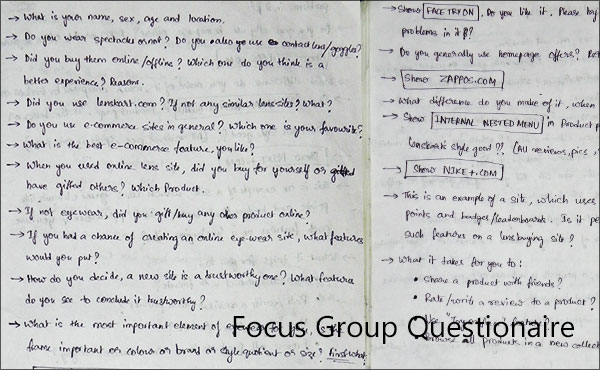 → What is your name, sex, age and location.
→ Do you wear spectacles or not? Do you also use contact lens/goggles?
→ Did you buy them online/offline? Which one do you think is a
better experience? Reasons.
→ Did you use lenskart.com? If not any similar lens sites? What?
→ Do you use e-commerce sites in general? Which one is your favourite?
→ What is the best e-commerce feature, you like?
→ When you used online lens site, did you buy for yourself or gifted
have gifted others? Which Product.
→ If not eyewear, did you gift/buy any other product online?
→ If you had a chance of creating an online eye-wear site, what features
would you put?
→ How do you decide, a new site is a trustworthy one? What features
do you see to conclude it trustworthy?
→ What is the most important element of
frame important or colour or brand or style quotient or size? First what
→ Show FACE TRY ON, Do you like it. Please
problems in it?
→ Do you generally use homepage offers?
→ Show ZAPPOS.COM
→ What difference do you make of it, when
→ Show INTERNAL NESTED MENU in Product
Lenskart style good?? (All reviews, pics,
→ Show NIKE+.COM
→ This is an example of a site, which uses
points and badges/leaderboards. Is it
such features on a lens buying site?
→ What it takes for you to:
• Share a product with friends?
• Rate/write a review to a product?
• Browse all products in a new
Focus Group Questionaire